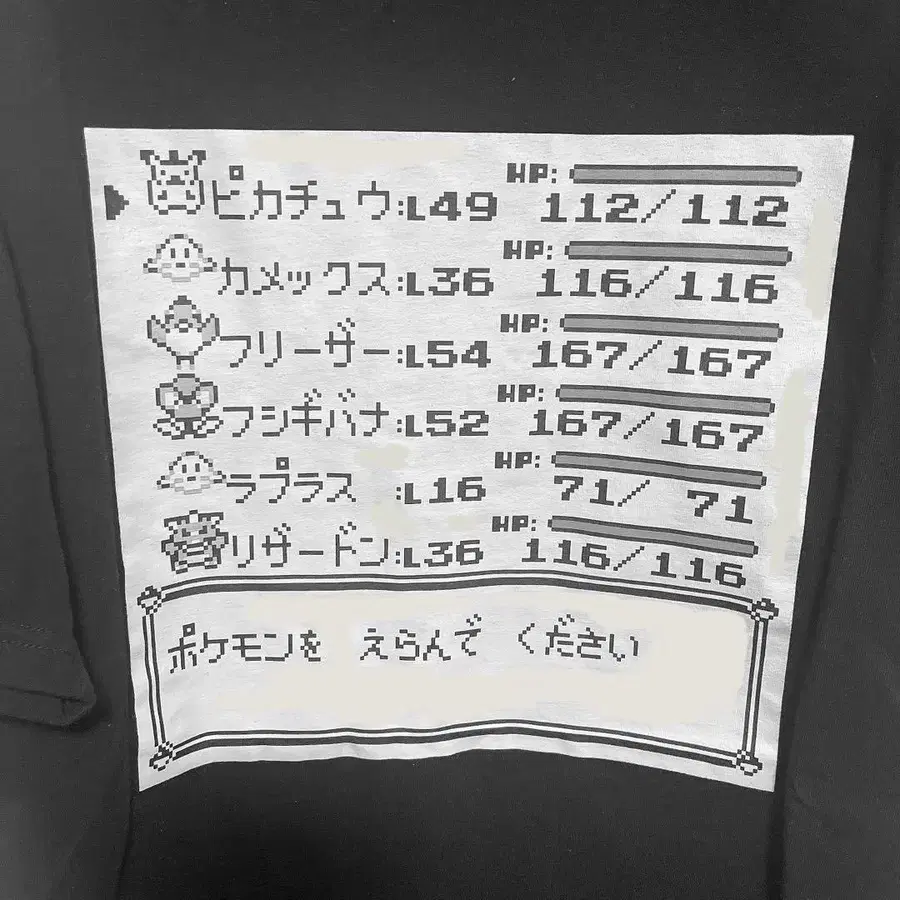 HP:
ピカチュウ:L49 112/112
HP:
カメックス:L36 116/116
HP:
フリーザー:L54 167/167
HP:
フシギバナ:L52 167/167
HP:
ラプラス :L16 71/ 71
HP:
リザードン:L36 116/116
ポケモンを えらんで ください